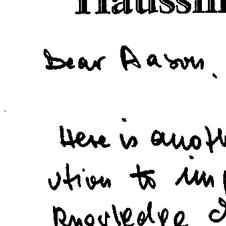 Dear Aason,
Here is anoth
ution to im
knowledge